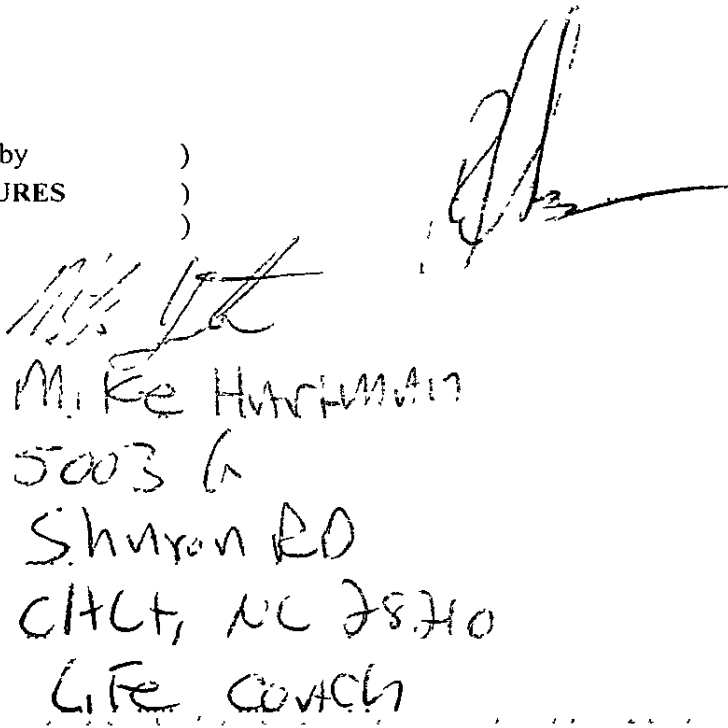 by )
URES )
)
Mike Hartman
5003 G
Sharon RD
CHLt, NC 28210
Life Coach